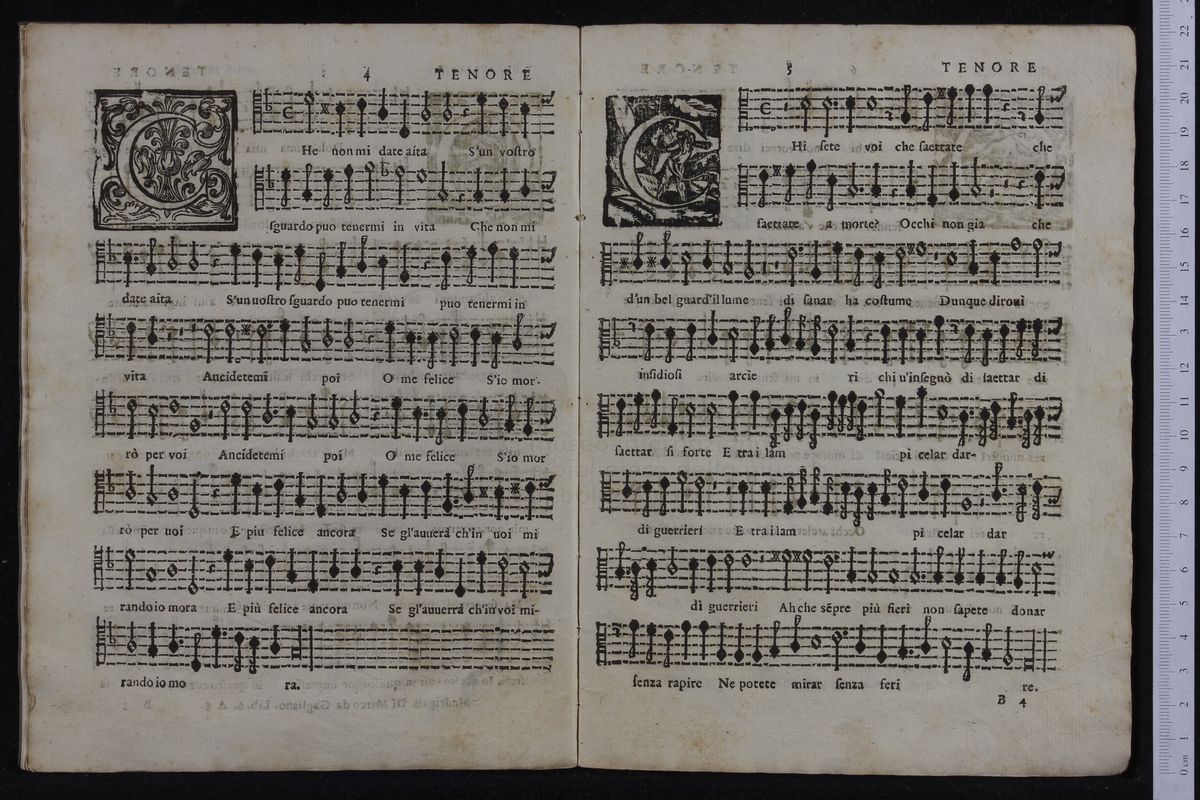 4 TENORE
CHe non mi date aita S'un vostro
sguardo puo tenermi in vita Che non mi
date aita S'un uostro sguardo puo tenermi puo tenermi in
vita Ancidetemi poi O me felice S'io mor-
rò per voi Ancidetemi poi O me felice S'io mor
rò per uoi E piu felice ancora Se gl'auuerà ch'in uoi mi
rando io mora E più felice ancora Se gl'auuerrà ch'in voi mi-
rando io mo ra.
5 TENORE
CHi sete voi che saettate che
saettate a morte? Occhi non gia che
d'un bel guard'il lume di sanar ha costume Dunque diroui
insidiosi arcie ri chi u'insegnò di saettar di
saettar si forte E tra i lam pi celar dar-
di guerrieri E tra i lam pi celar dar
di guerrieri Ah che sẽpre più fieri non sapete donar
senza rapire Ne potete mirar senza feri re.
B 4
Madrigali. Di Marco da Gagliano. Lib. 6. A 5